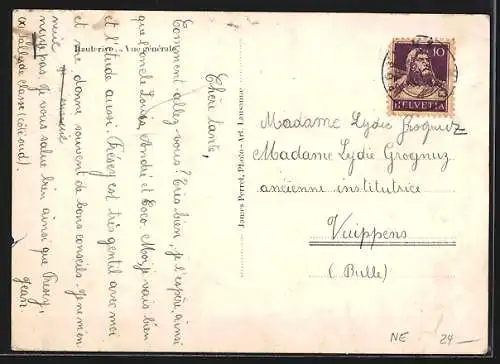 Hauterive - Vue générale
Chère tante,
Comment allez-vous? Très bien, je l'espère, ainsi
que l'oncle Louis, André et Coco. Moi, je vais bien
et l'étude aussi. Frésey est très gentil avec moi
et me donne souvent de bons conseils. Je ne m'en
nuie pas. Je vous salue bien ainsi que Frésey,
Jean
salle de classe (côté sud).
James Perret, Photo-Art, Lausanne
10
HELVETIA
Madame Lydie Grognuz
Madame Lydie Grognuz
ancienne institutrice
Vuippens
(Bulle)
NE 24 —